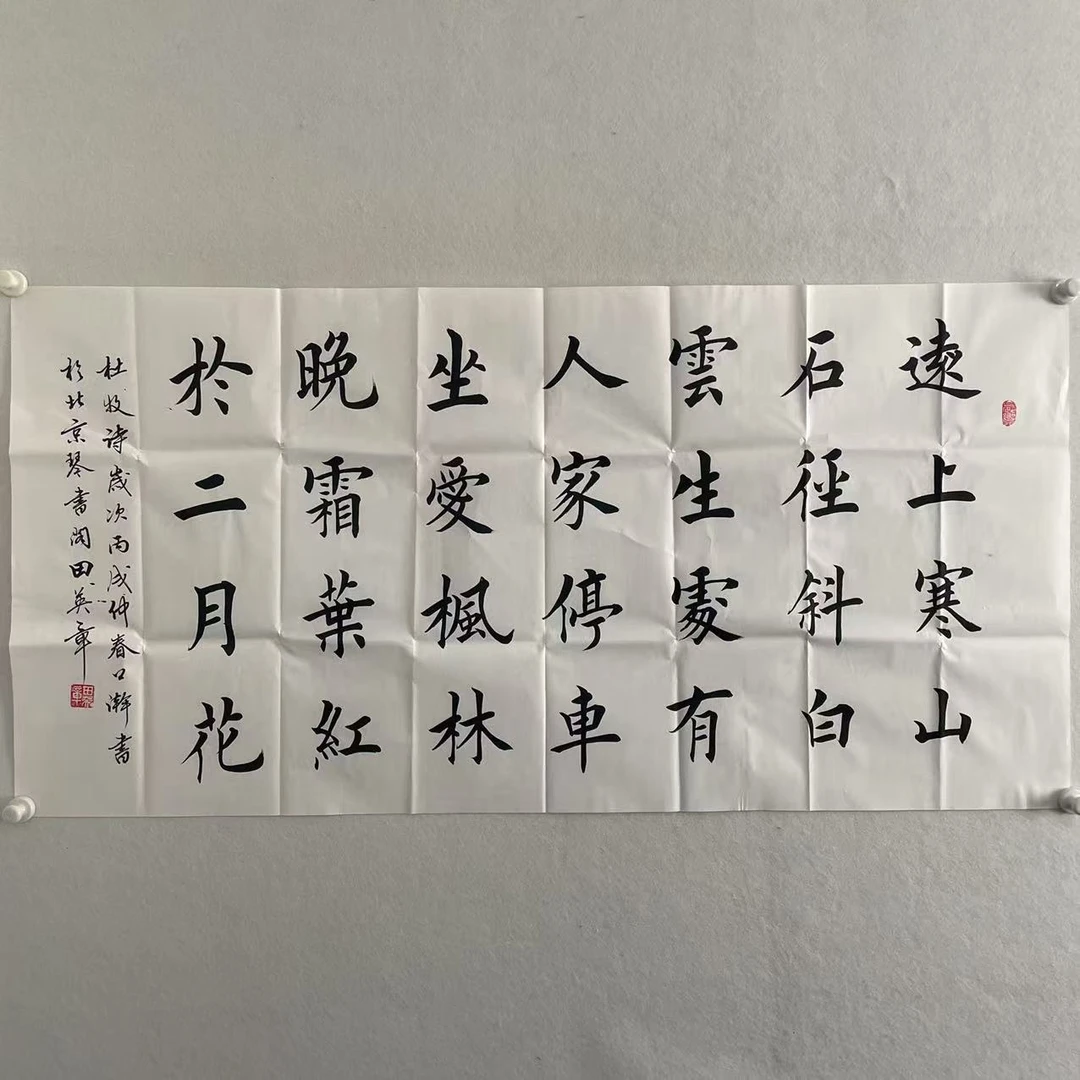 遠上寒山
石徑斜白
雲生處有
人家停車
坐愛楓林
晚霜葉紅
於二月花
杜牧诗歲次丙戌仲春口瀚書
於北京琴書阁田英章